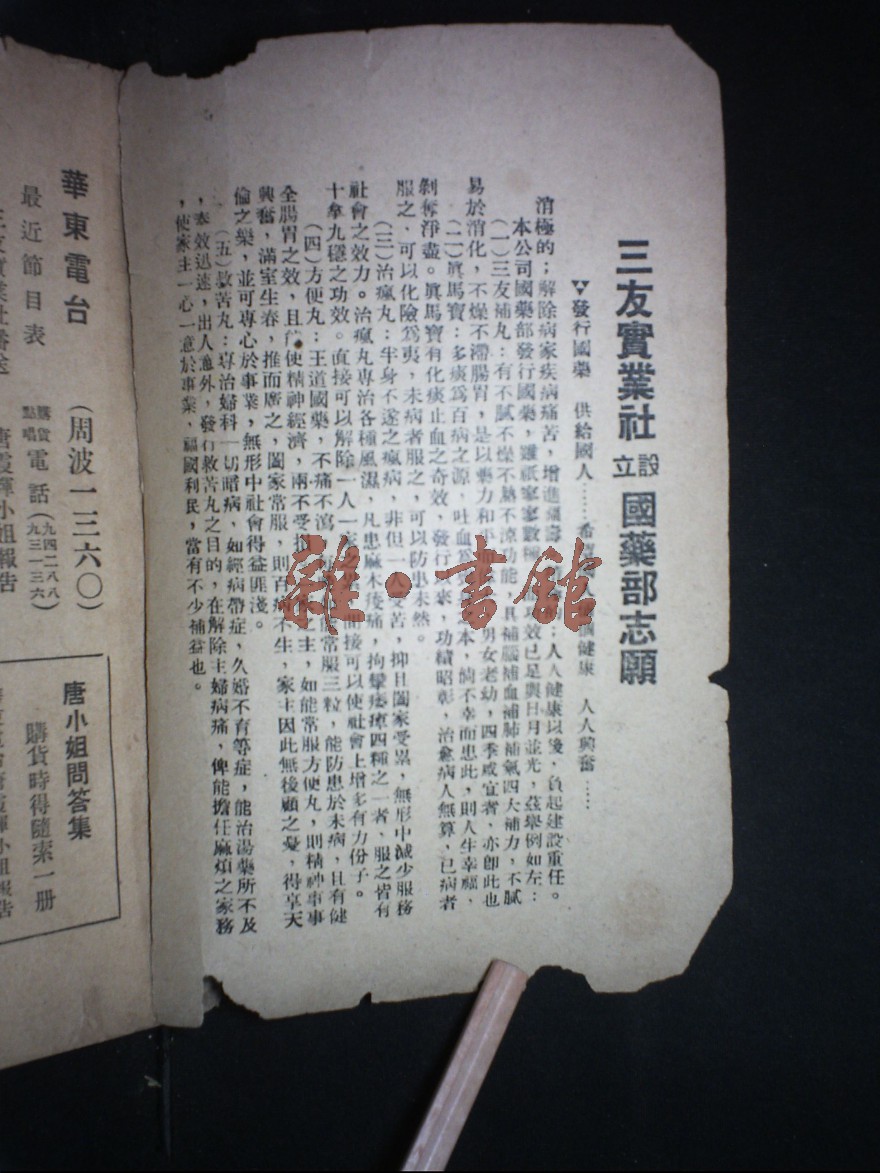 三友實業社設立國藥部志願
▼發行國藥 供給國人……希 人人 健康 人人興奮……
消極的；解除病家疾病痛苦，增進 ：人人健康以後，負起建設重任。
本公司國藥部發行國藥，雖祇寥寥數種 功效已足與日月並光，茲舉例如左：
（一）三友補丸：有不膩不燥不熱不涼功能，具補腦補血補肺補氣四大補力，不膩
易於消化，不燥不滯腸胃，是以藥力和平 男女老幼，四季咸宜者，亦卽此也
（二）眞馬寶：多痰爲百病之源，吐血爲 本，倘不幸而患此，則人生幸福，
剝奪淨盡。眞馬寶有化痰止血之奇效，發行 來，功績昭彰，治愈病人無算，已病者
服之，可以化險爲夷，未病者服之，可以防患未然。
（三）治瘋丸：半身不遂之瘋病，非但一人受苦，抑且闔家受累，無形中減少服務
社會之效力。治瘋丸專治各種風濕，凡患麻木痠痛，拘攣痿痺四種之一者，服之皆有
十拿九穩之功效。直接可以解除一人一家之 間接可以使社會上增多有力份子。
（四）方便丸：王道國藥，不痛不瀉， 常服三粒，能防患於未病，且有健
全腸胃之效，且 使精神經濟，兩不受損 之主，如能常服方便丸，則精神事事
興奮，滿室生春，推而廣之，闔家常服，則百病不生，家主因此無後顧之憂，得享天
倫之樂，並可專心於事業，無形中社會得益匪淺。
（五）救苦丸：專治婦科一切暗病，如經病帶症，久婚不育等症，能治湯藥所不及
，奏效迅速，出人意外，發行救苦丸之目的，在解除主婦病痛，俾能擔任麻煩之家務
，使家主一心一意於事業，福國利民，當有不少補益也。
華東電台（周波一三六〇）
最近節目表 購貨點唱電話（九四二八八 九三一三六）
三友實業社播送 唐霞輝小姐報告
唐小姐問答集
購貨時得隨索一册
雜·書館